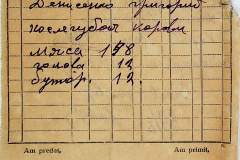 Денисенко Григорий
после убоя коровы
Мяса 178
голова 12
бутор. 12.
Am predat,
Am primit,